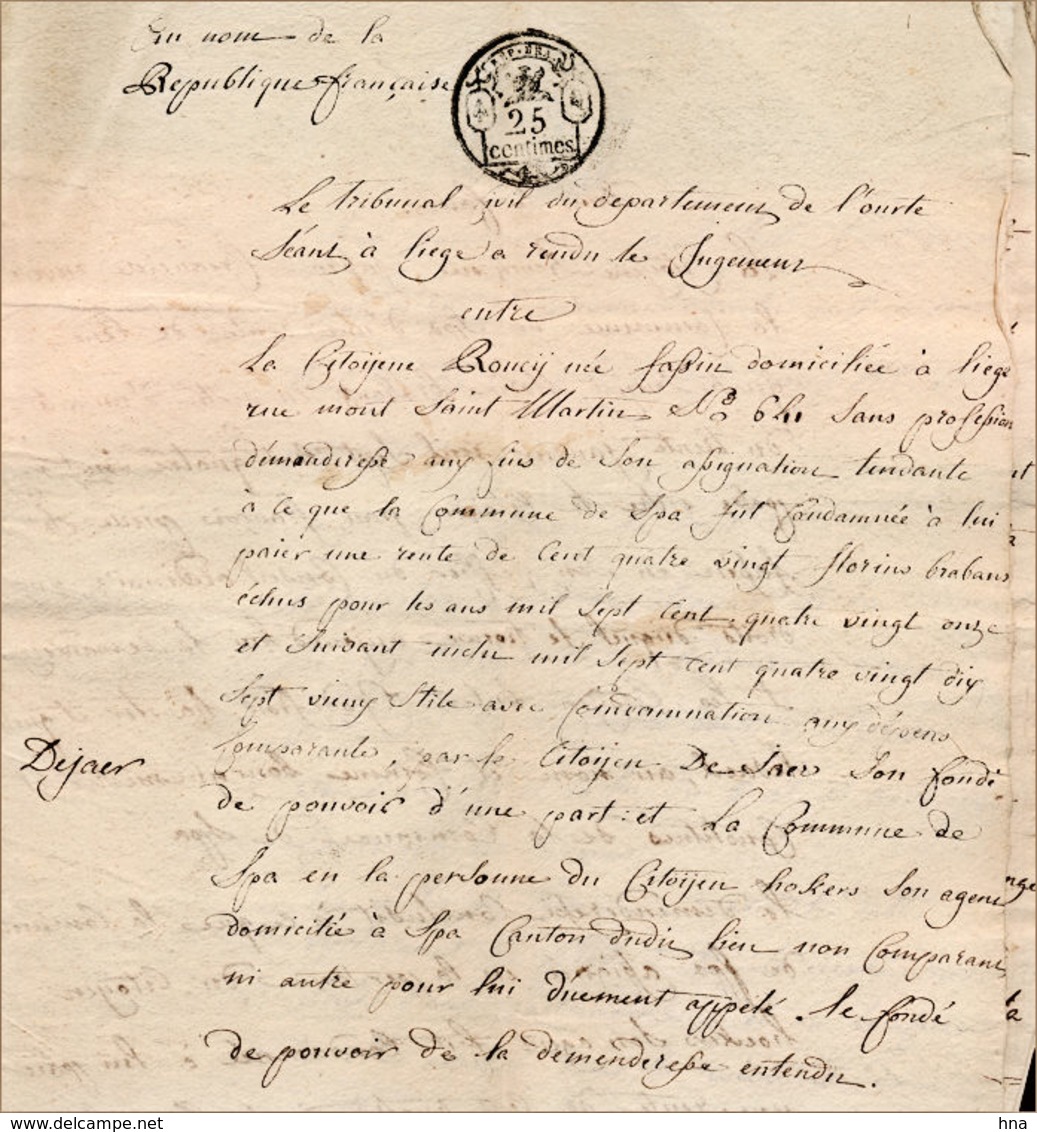 Au nom de la
Republique française
REP. FRA.
25
centimes
Le tribunal civil du departement de l'ourte
Séant à liege a rendu le Jugement
entre
La Citoÿene Roncÿ née fassin domiciliée à liege
rue mont Saint Martin N.o 641 Sans profession
démanderesse aux fins de Son assignation tendante
à ce que la Commune de Spa fut Condamnée à lui
paier une rente de Cent quatre vingt florins brabans
échus pour les ans mil Sept Cent quatre vingt onze
et Suivant inclu mil Sept Cent quatre vingt dix
Sept vieux Stile avec Condamnation aux dépens
Comparante, par le Citoÿen De Jaer Son fondé
Dejaer
de pouvoir d'une part: et La Commune de
Spa en la personne du Citoÿen hokers Son agent
domicilié à Spa Canton dudit lieu non Comparant
ni autre pour lui duement appelé. le fondé
de pouvoir de la demenderesse entendu.
Delcampe.net
hna